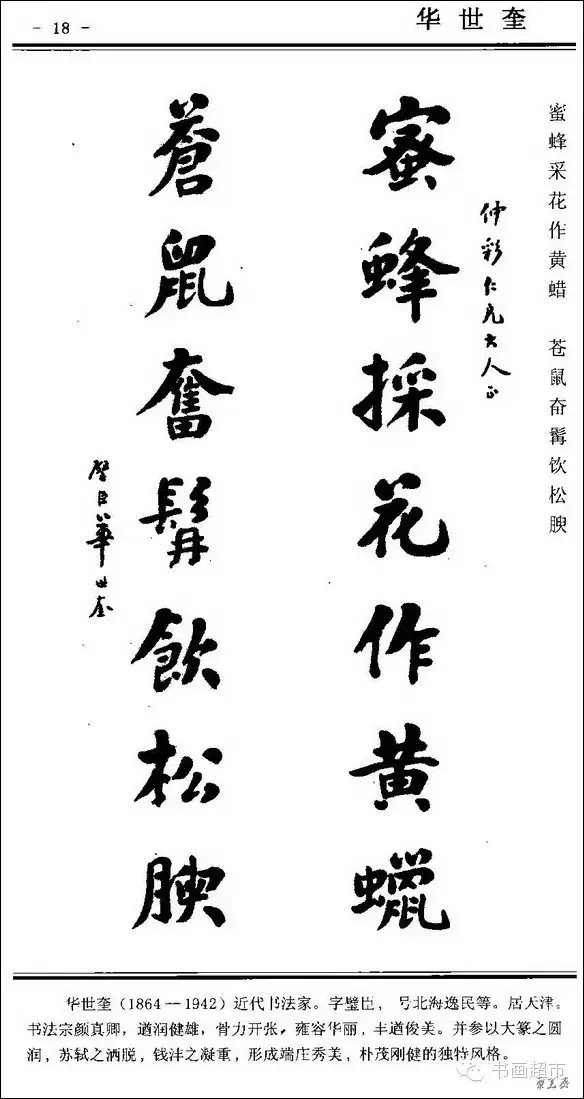 - 18 -
华世奎
蜜蜂采花作黄蜡 苍鼠奋髯饮松腴
仲彩仁兄大人正
蜜蜂採花作黄蠟
蒼鼠奮髯飲松腴
璧臣華世奎
华世奎(1864—1942)近代书法家。字璧臣,号北海逸民等。居天津。
书法宗颜真卿,遒润健雄,骨力开张,雍容华丽,丰遒俊美。并参以大篆之圆
润,苏轼之洒脱,钱沣之凝重,形成端庄秀美,朴茂刚健的独特风格。
书画超市